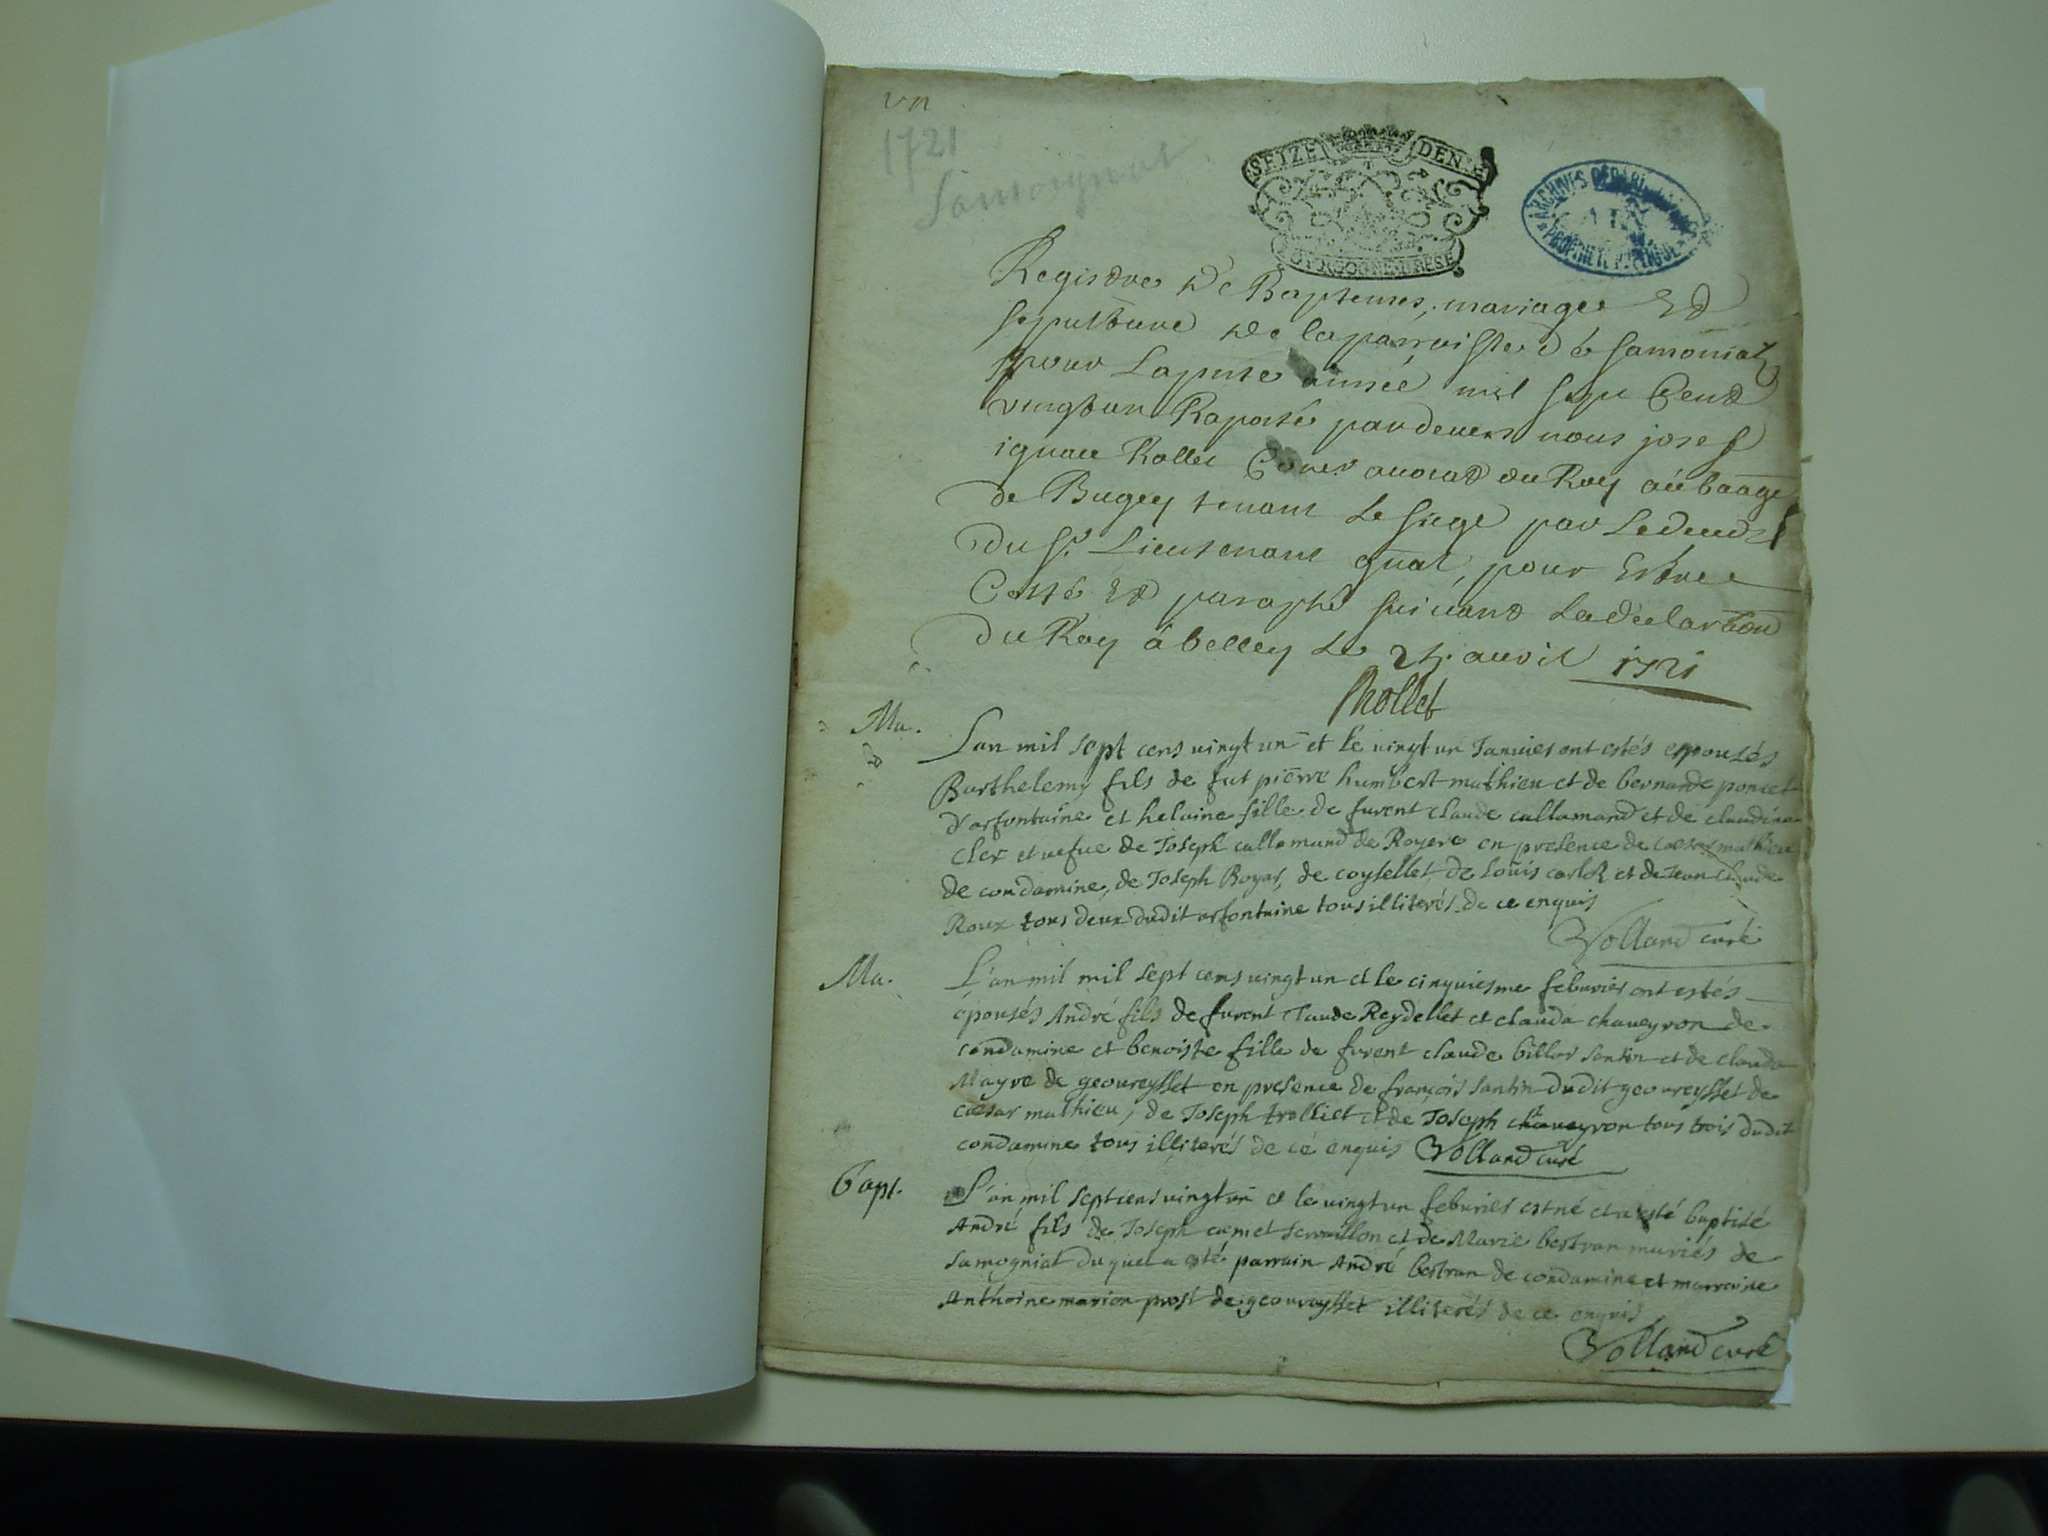 vn
1721
Samoignat
SEIZE DEN
BOURGOGNE BRESE
ARCHIVES DÉPART
AIN
PROPRIÉTÉ PUBLIQUE
Registre De Baptemes, mariages Et
sepulture De la parroisse de samoniat
pour La pnte année mil sept Cent
vingt un Raporté pardevers nous josef
ignace Rollet Coner avocat du Roy au baage
de Bugey tenant Le siege par
du Sr. Lieutenant gnal, pour Estre
Cotté Et paraphé suivant La declaration
du Roy á belley Le avril 1721
Rollet
Ma. L'an mil sept cens vingt un et le vingt un Januier ont estés epousés
Barthelemy fils de fut pierre humbert mathieu et de bernarde poncet
d'arfontaine et helaine fille de furent claude callamand et de claudine
cler et vefue de Joseph callemand de Royere en presence de cæsar mathieu
de condamine, de Joseph Boyar, de coysellet, de Louis et de Jean claude
Roux tous deux dudit arfontaine tous illiterés de ce enquis
Volland curé
Ma. L'an mil mil sept cens vingt un et le cinquiesme feburier ont estés
epousés André fils de furent Claude Reydellet et clauda chaueyron de
condamine et benoiste fille de furent claude billor santin et de clauda
Mayre de geoureysset en presence de françois santin dudit geoureysset de
cæsar mathieu, de Joseph trolliet et de Joseph chaueyron tous trois dudit
condamine tous illiterés de ce enquis Volland curé
bapt. L'an mil sept cens vingt un et le vingt un feburier est né et a esté baptisé
André fils de Joseph camet seruillon et de Marie bertran mariés de
samogniat du quel a esté parrain André bertran de condamine et marraine
Anthoine marion prost de geoureysset illiterés de ce enquis
Volland curé